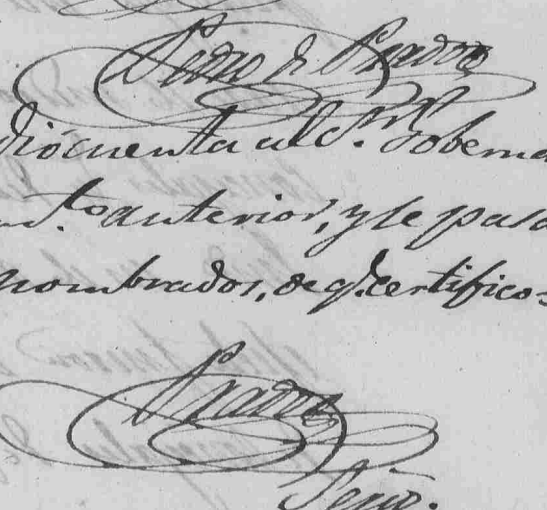 Pedro de Prado
dió cuenta al Sr. Goberna
m.to anterior, y le pasa
nombrados, de q.e certifico
Prado
Serio.